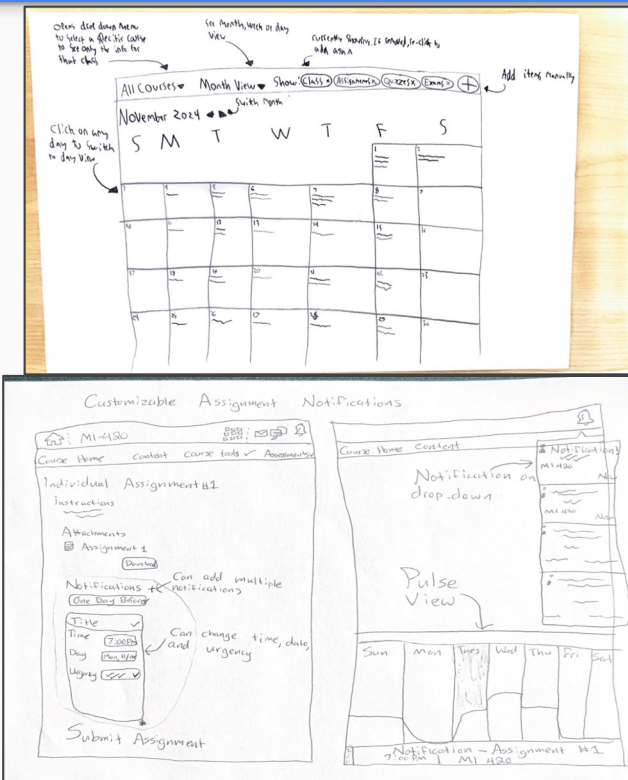 Opens drop down menu
to select a specific course
to see only the info for
that class
See Month, week or day
View
Currently Showing. If removed, re-click to
add again
Add items manually
All Courses Month View Show: Class x Assignments x Quizzes x Exams x +
November 2024
Switch Month
Click on any
day to switch
to day View
S M T W T F S
1 2
3 4 5 6 7 8 9
10 11 12 13 14 15 16
17 18 19 20 21 22 23
24 25 26 27 28 29 30
Customizable Assignment Notifications
MI-420
Course Home Content Course tools Assessments
Individual Assignment #1
Instructions
Attachments
Assignment 1
Download
Notifications +
Can add multiple
notifications
One Day Before
Title
Time 7:00PM
Day
Urgency
Can change time, date,
and urgency
Submit Assignment
Course Home Content
Notifications
MI 420
Now
Notification on
drop-down
MI 420
Now
Pulse
View
Sun Mon Tues Wed Thu Fri Sat
Notification - Assignment #1
7:00 PM | MI 420